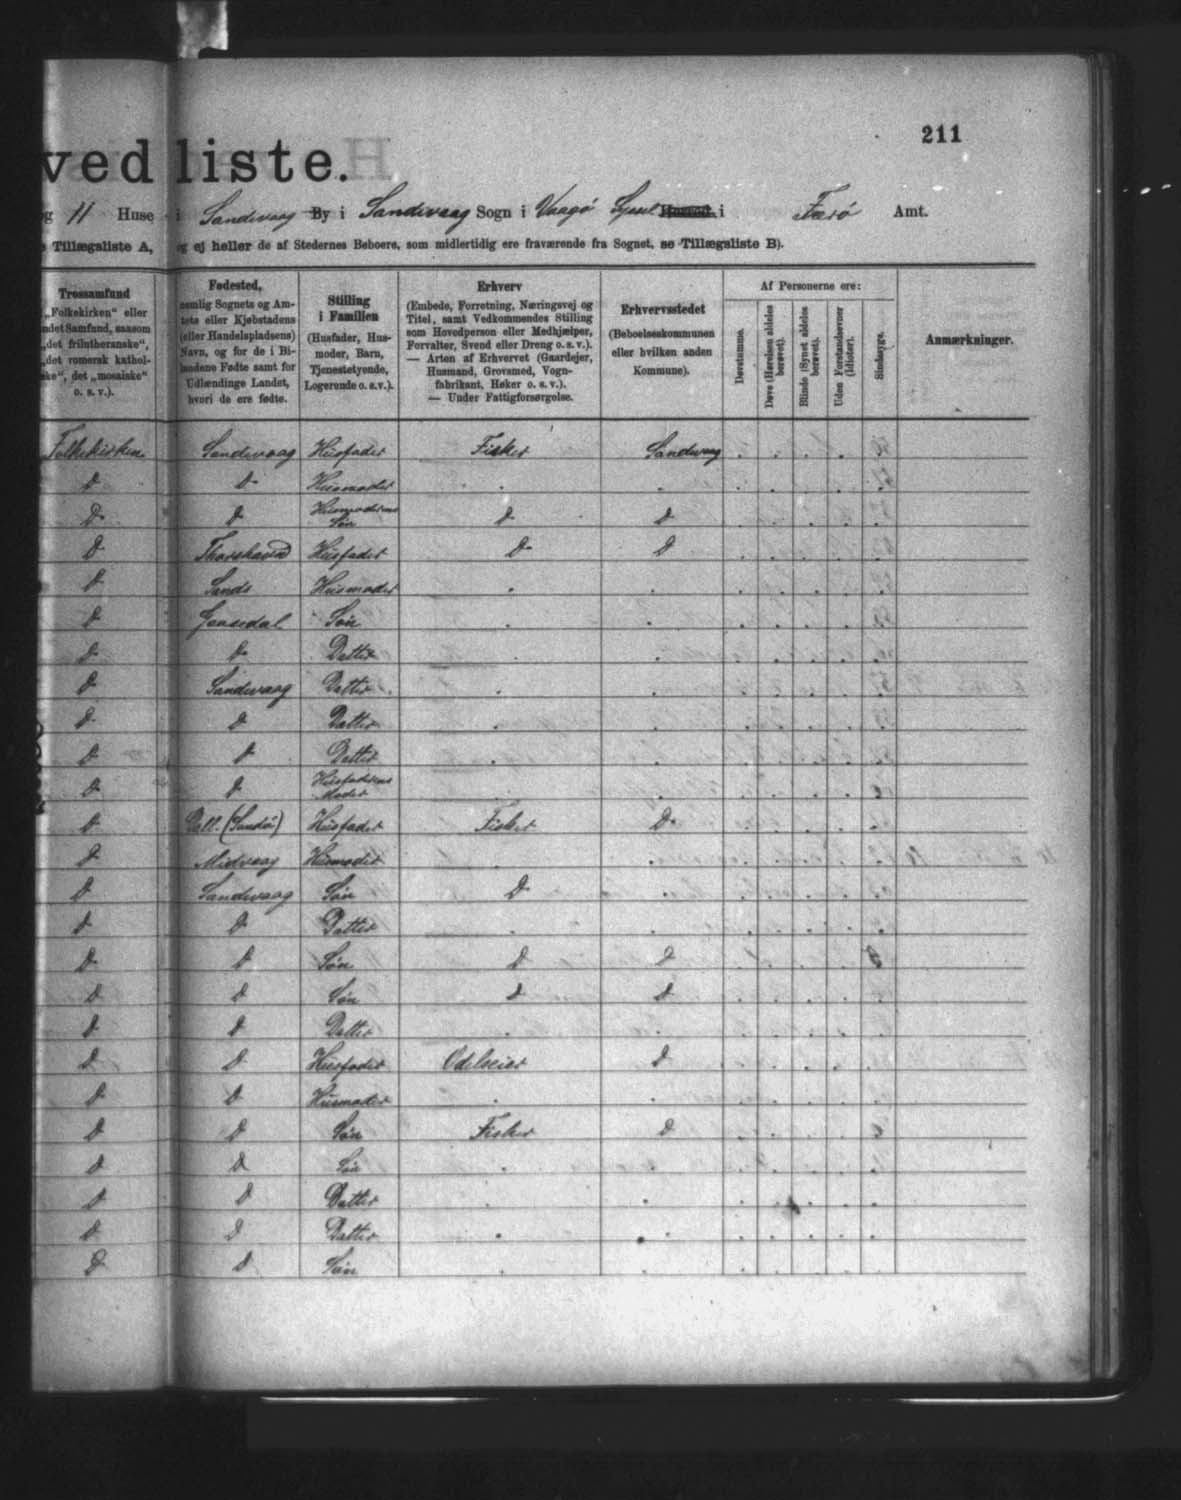 211
ved liste.
og 11 Huse i Sandevaag By i Sandevaag Sogn i Vaagø Syssel Herred i Færø Amt.
Tillægsliste A, og ej heller de af Stedernes Beboere, som midlertidig ere fraværende fra Sognet, se Tillægsliste B).
Trossamfund
„Folkekirken" eller
andet Samfund, saasom
„det frilutheranske",
„det romersk kathol-
ske", det „mosaiske"
o. s. v.).
Fødested,
nemlig Sognets og Am-
tets eller Kjøbstadens
(eller Handelspladsens)
Navn, og for de i Bi-
landene Fødte samt for
Udlændinge Landet,
hvori de ere fødte.
Stilling
i Familien
(Husfader, Hus-
moder, Barn,
Tjenestetyende,
Logerende o. s. v.).
Erhverv
(Embede, Forretning, Næringsvej og
Titel, samt Vedkommendes Stilling
som Hovedperson eller Medhjælper,
Forvalter, Svend eller Dreng o. s. v.).
— Arten af Erhvervet (Gaardejer,
Husmand, Grovsmed, Vogn-
fabrikant, Høker o. s. v.).
— Under Fattigforsørgelse.
Erhvervsstedet
(Beboelseskommunen
eller hvilken anden
Kommune).
Af Personerne ere:
Døvstumme.
Døve (Hørelsen aldeles
berøvet).
Blinde (Synet aldeles
berøvet).
Uden Forstandsevner
(Idioter).
Sindssyge.
Anmærkninger.
Folkekirken Sandevaag Husfader Fisker Sandevaag
D D Husmoder
D D Husmoderens Søn D D
D Thorshavn Husfader D D
D Sands Husmoder
D Gaasedal Søn
D D Datter
D Sandevaag Datter
D D Datter
D D Datter
D D Husfaderens Moder
D Dall. (Sandø) Husfader Fisker D
D Midvaag Husmoder
D Sandevaag Søn D
D D Datter
D D Søn D D
D D Søn D D
D D Datter
D D Husfader Odelseier D
D D Husmoder
D D Søn Fisker D
D D Søn
D D Datter
D D Datter
D D Søn